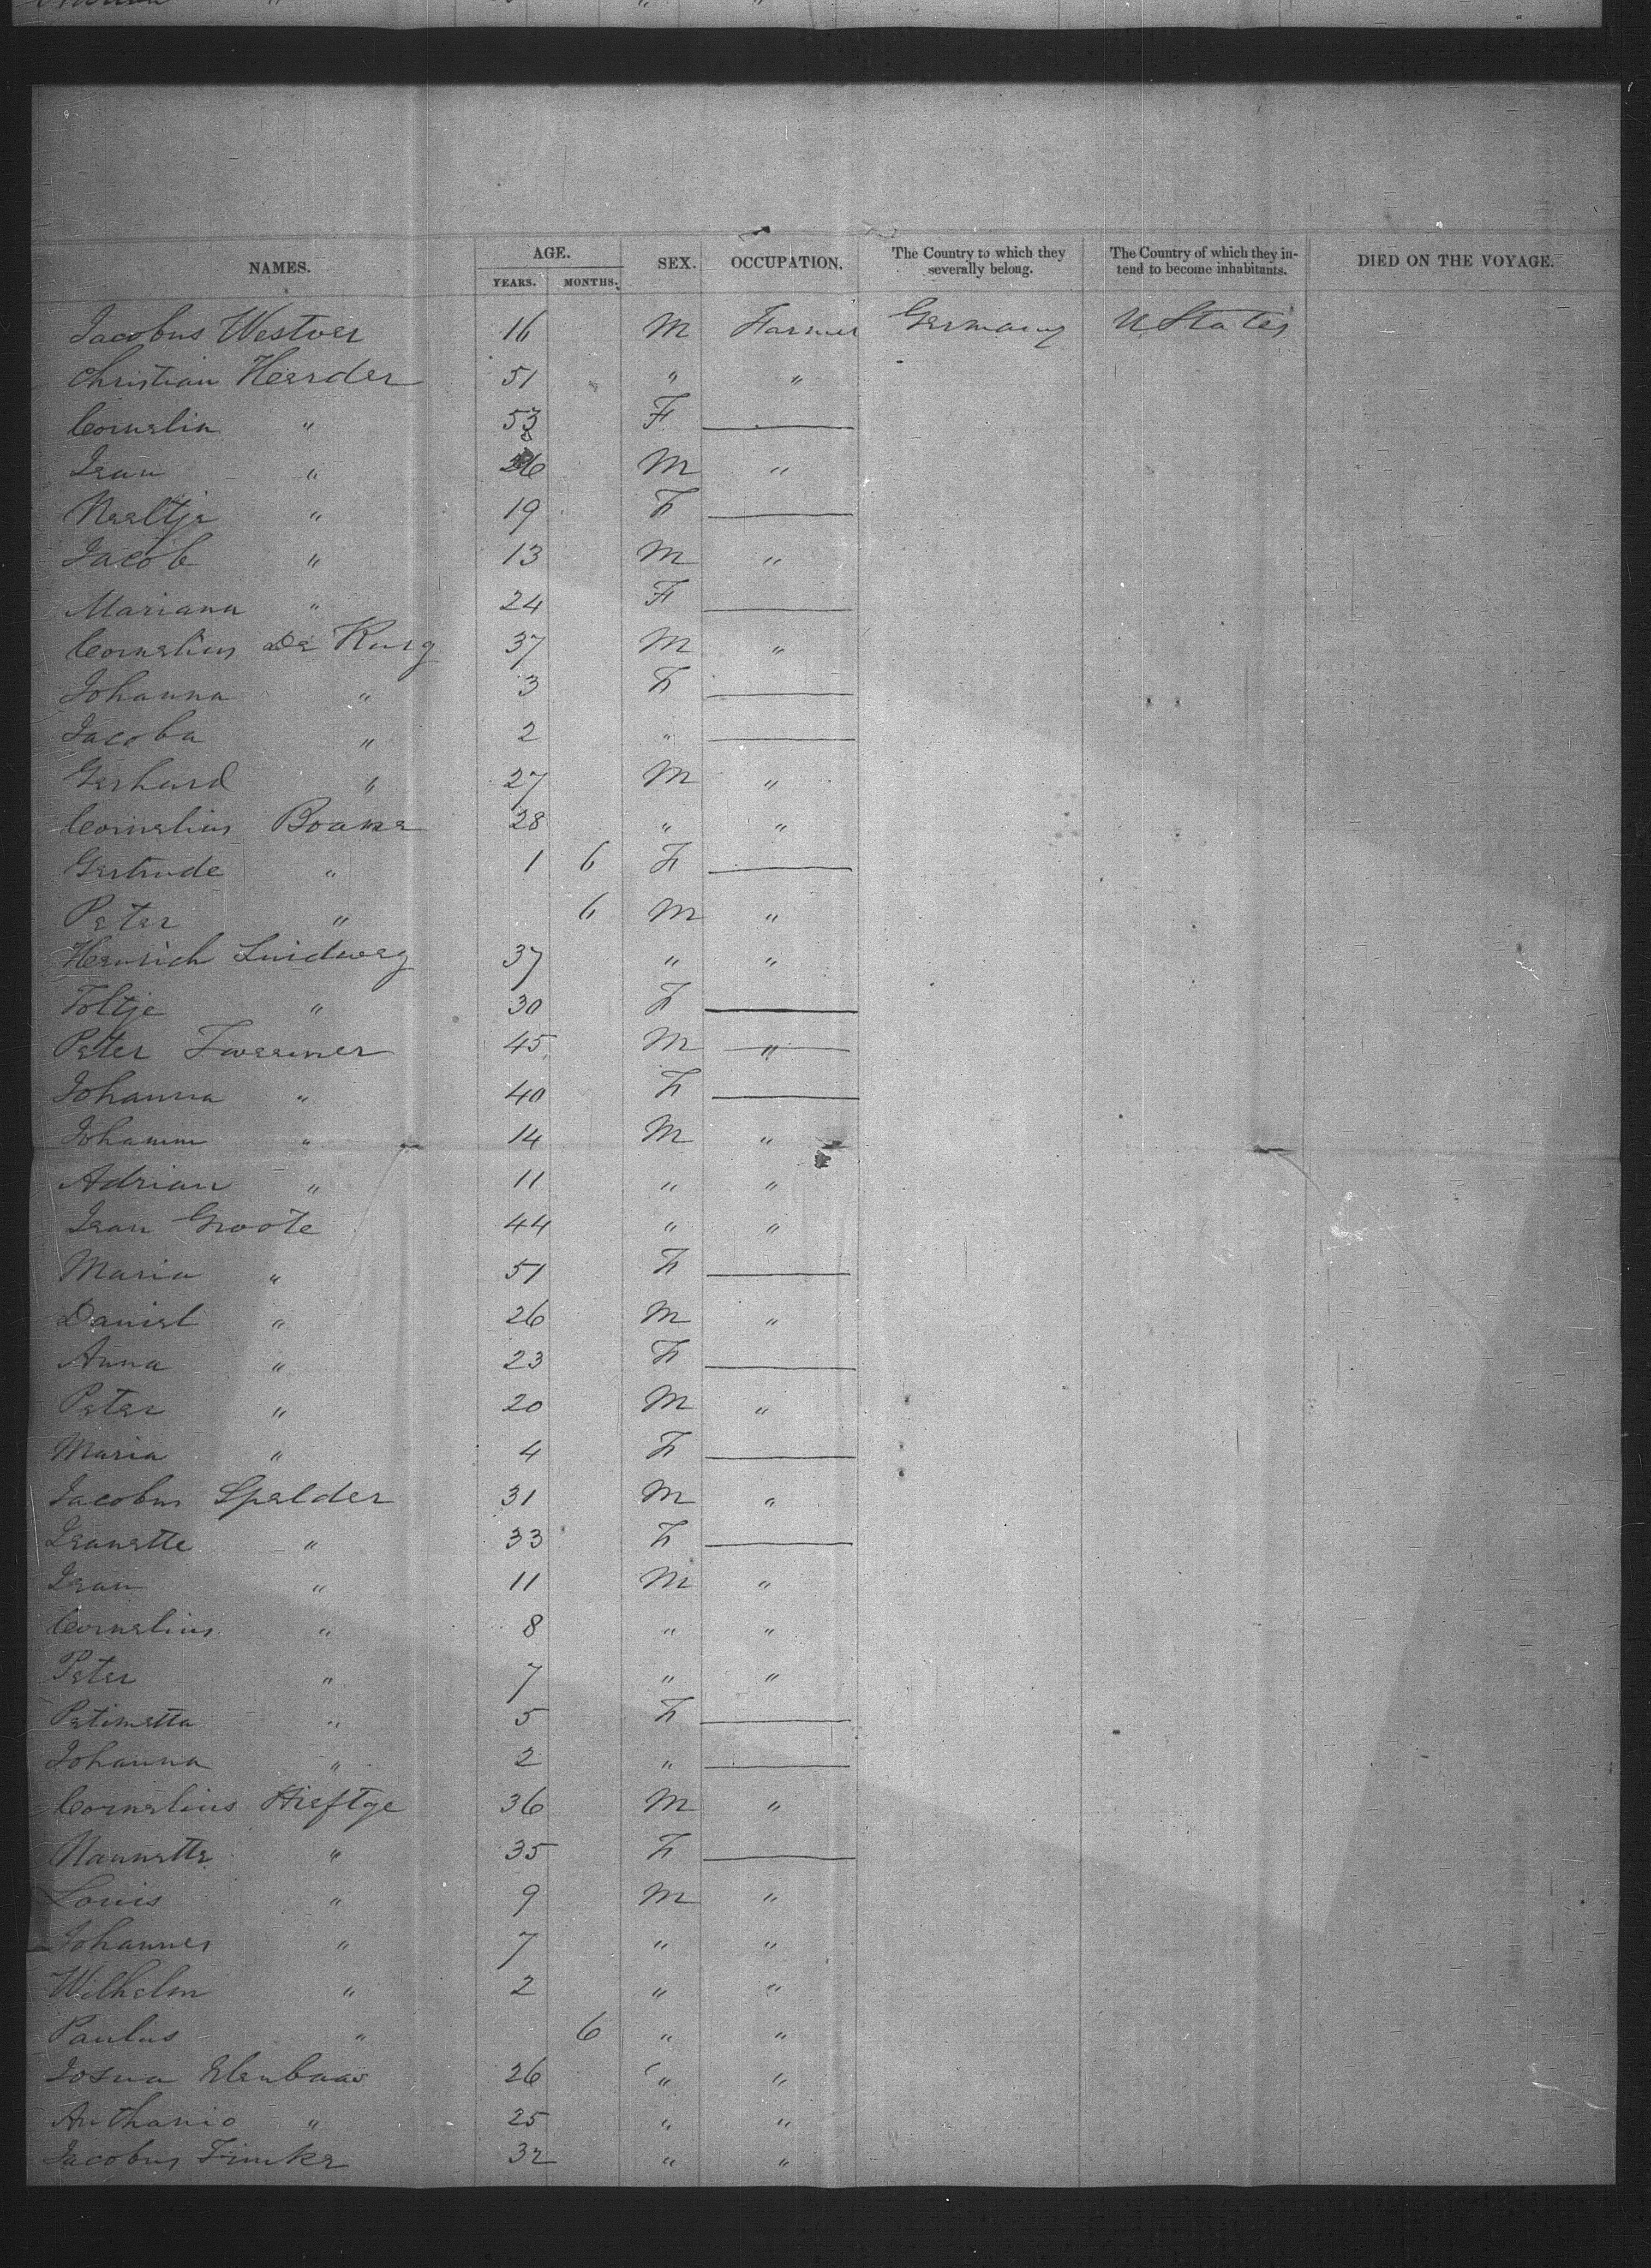 NAMES. AGE. SEX. OCCUPATION. The Country to which they severally belong. The Country of which they intend to become inhabitants. DIED ON THE VOYAGE.
YEARS. MONTHS.
Jacobus Westver 16 M Farmer Germany U States
Christian Heerder 51 " "
Cornelia " 53 F
Jean " 26 M "
Neeltje " 19 F
Jacob " 13 M "
Mariana " 24 F
Cornelius De 37 M "
Johanna " 3 F
Jacoba " 2 "
Gerhard " 27 M "
Cornelius 28 " "
Gertrude " 1 6 F
Peter " 6 M "
Heinrich 37 " "
Toltje " 30 F
Peter 45 M "
Johanna " 40 F
Johann " 14 M "
Adrian " 11 " "
Jean Groote 44 " "
Maria " 51 F
Daniel " 26 M "
Anna " 23 F
Peter " 20 M "
Maria " 4 F
Jacobus Spelder 31 M "
Jeanette " 33 F
Jean " 11 M "
Cornelius " 8 " "
Peter " 7 " "
" 5 F
Johanna " 2 "
Cornelius Hieftge 36 M "
Nannette " 35 F
Louis " 9 M "
Johannes " 7 " "
Wilhelm " 2 " "
Paulus " 6 " "
Josua Elenbaas 26 " "
Anthonio " 25 " "
Jacobus 32 " "